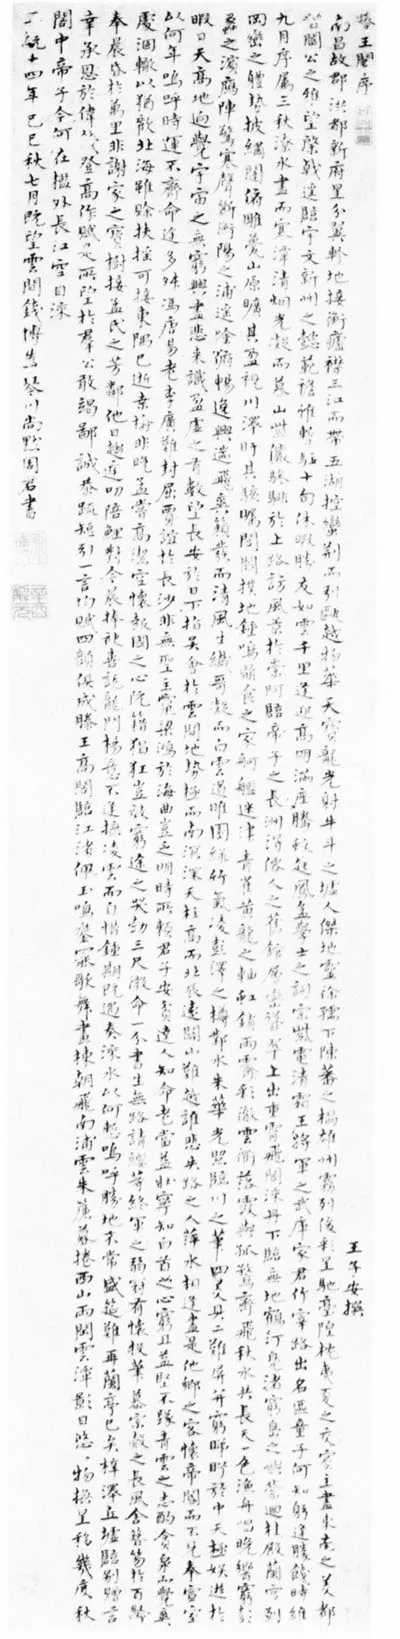 滕王閣序
王子安撰
南昌故郡洪都新府星分翼軫地接衡廬襟三江而帶五湖控蠻荊而引甌越物華天寶龍光射牛斗之墟人傑地靈徐孺下陳蕃之榻雄州霧列俊彩星馳臺隍枕夷夏之交賓主盡東南之美都
督閻公之雅望棨戟遙臨宇文新州之懿範襜帷暫駐十旬休暇勝友如雲千里逢迎高朋滿座騰蛟起鳳孟學士之詞宗紫電清霜王將軍之武庫家君作宰路出名區童子何知躬逢勝餞時維
九月序屬三秋潦水盡而寒潭清烟光凝而暮山紫儼驂騑於上路訪風景於崇阿臨帝子之長洲得仙人之舊館層巒聳翠上出重霄飛閣流丹下臨無地鶴汀鳧渚窮島之嶼縈迴桂殿蘭宮列
岡巒之體勢披繡闥俯雕甍山原曠其盈視川澤盱其駭矚閭閻撲地鍾鳴鼎食之家舸艦迷津青雀黃龍之軸虹銷雨霽彩徹雲衢落霞與孤鶩齊飛秋水共長天一色漁舟唱晚響窮彭
蠡之濱鴈陣驚寒聲斷衡陽之浦遙吟俯暢逸興遄飛爽籟發而清風生纖歌凝而白雲遏睢園綠竹氣凌彭澤之樽鄴水朱華光照臨川之筆四美具二難并窮睇眄於中天極娛遊於
暇日天高地迥覺宇宙之無窮興盡悲來識盈虛之有數望長安於日下指吳會於雲間地勢極而南溟深天柱高而北辰遠關山難越誰悲失路之人萍水相逢盡是他鄉之客懷帝閽而不見奉宣室
以何年嗚呼時運不齊命途多舛馮唐易老李廣難封屈賈誼於長沙非無聖主竄梁鴻於海曲豈乏明時所賴君子安貧達人知命老當益壯寧知白首之心窮且益堅不墜青雲之志酌貪泉而覺爽
處涸轍以猶歡北海雖賒扶搖可接東隅已逝桑榆非晚孟嘗高潔空懷報國之心阮籍猖狂豈效窮途之哭勃三尺微命一介書生無路請纓等終軍之弱冠有懷投筆慕宗慤之長風舍簪笏於百齡
奉晨昏於萬里非謝家之寶樹接孟氏之芳鄰他日趨庭叨陪鯉對今晨捧袂喜託龍門楊意不逢撫凌雲而自惜鍾期既遇奏流水以何慙嗚呼勝地不常盛筵難再蘭亭已矣梓澤丘墟臨別贈言
幸承恩於偉餞登高作賦是所望於羣公敢竭鄙誠恭疏短引一言均賦四韻俱成滕王高閣臨江渚佩玉鳴鑾罷歌舞畫棟朝飛南浦雲朱簾暮捲西山雨閒雲潭影日悠悠物換星移幾度秋
閣中帝子今何在檻外長江空自流
正統十四年己巳秋七月既望雲間錢博為琴川尚默周君書